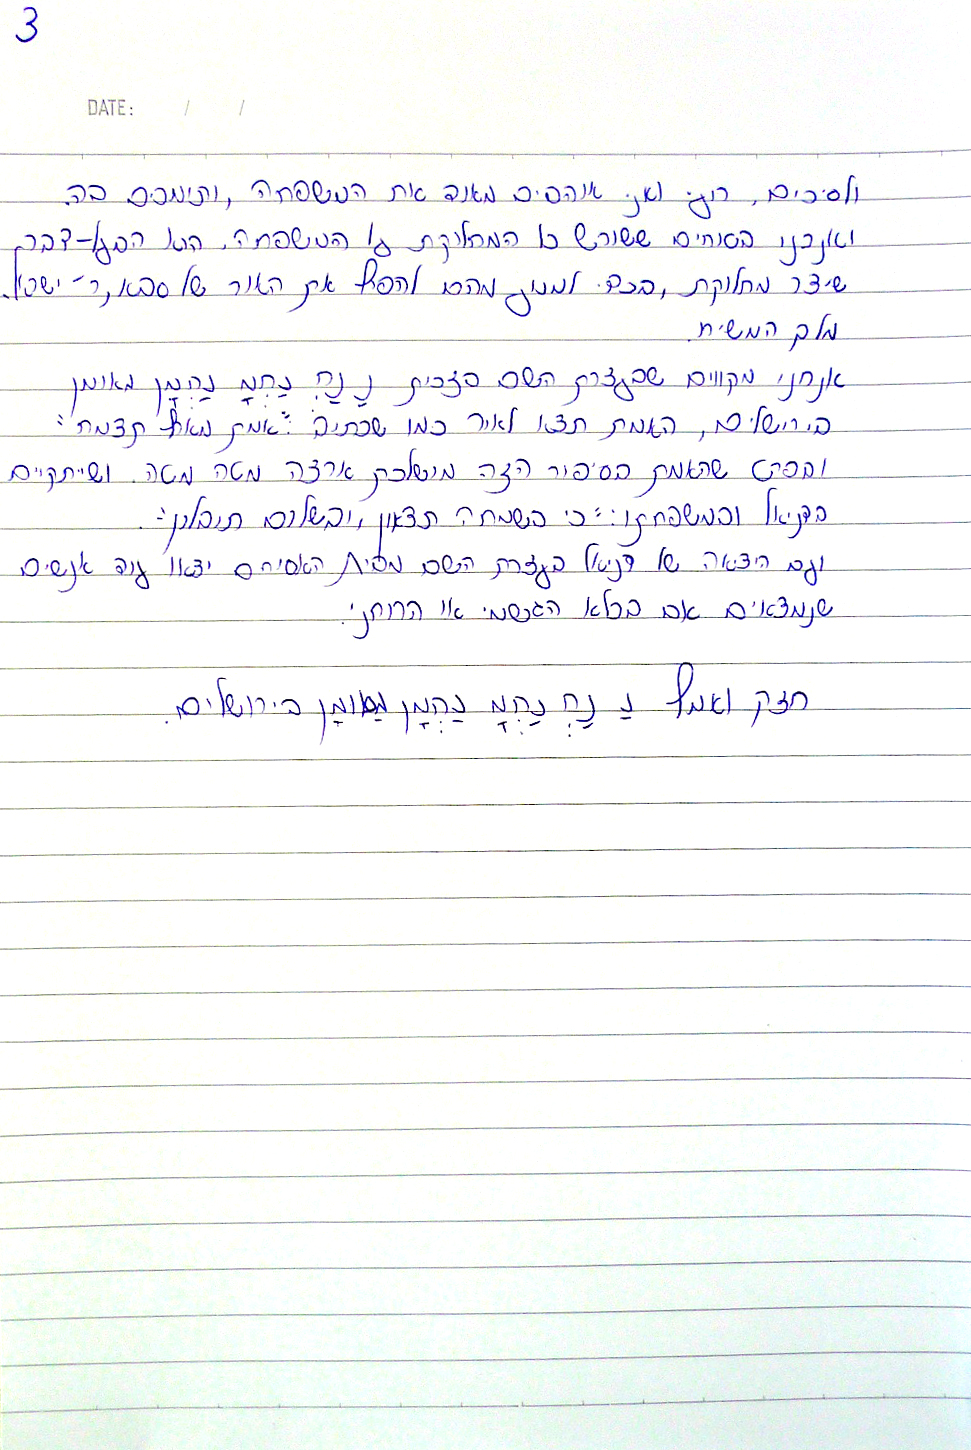 3
DATE: / /
ולסיכום, רוני ואני אוהבים מאוד את המשפחה, ותומכים בה.
ואנחנו בטוחים ששורש כל המחלוקת על המשפחה. הוא הבעל-דבר
שיצר מחלוקת, בכדי למנוע מהם להפיץ את האור של סבא, ר׳ ישראל.
מלך המשיח.
אנחנו מקווים שבעזרת השם בזכות נַ נַחְ נַחְמָ נַחְמָן מאומן
בירושלים, האמת תצא לאור כמו שכתוב: "אמת מארץ תצמח"
ובפרט שהאמת בסיפור הזה מושלכת ארצה מטה מטה. ושייתקיים
בדניאל ובמשפחתו: "כי בשמחה תצאון, ובשלום תובלון".
ועם היציאה של דניאל בעזרת השם מבית האסורים יצאו עוד אנשים
שנמצאים אם בכלא הגשמי או הרוחני.
חזק ואמץ נַ נַחְ נַחְמָ נַחְמָן מֵאוּמָן בירושלים.